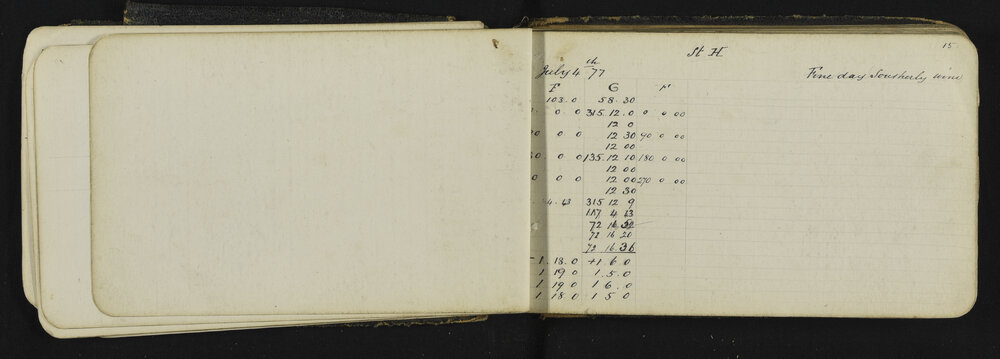 15
St H
July 4th 77 Fine day Southerly wind
F G H
103.0 58.30
0 0 315.12.0 0 0 00
12 0
0 0 0 12 30 90 0 00
12 00
0 0 135.12 10 180 0 00
12 00
0 0 0 12 00 270 0 00
12 30
43 315 12 9
4 13
72 16
72 16 20
72 16 36
1.18.0 +1 6 0
1 19 0 1.5.0
1 19 0 1 6.0
1 18 0 1 5 0